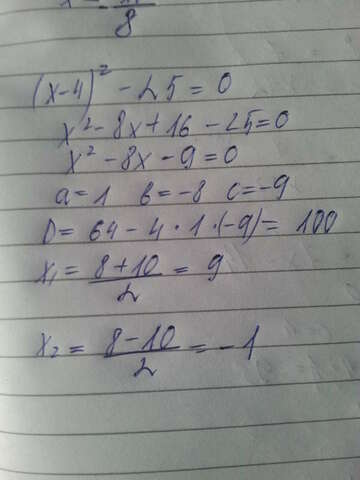 8
(x-4)² - 25 = 0
x² - 8x + 16 - 25 = 0
x² - 8x - 9 = 0
a = 1 b = -8 c = -9
D = 64 - 4 · 1 · (-9) = 100
x₁ = 8 + 10 / 2 = 9
x₂ = 8 - 10 / 2 = -1